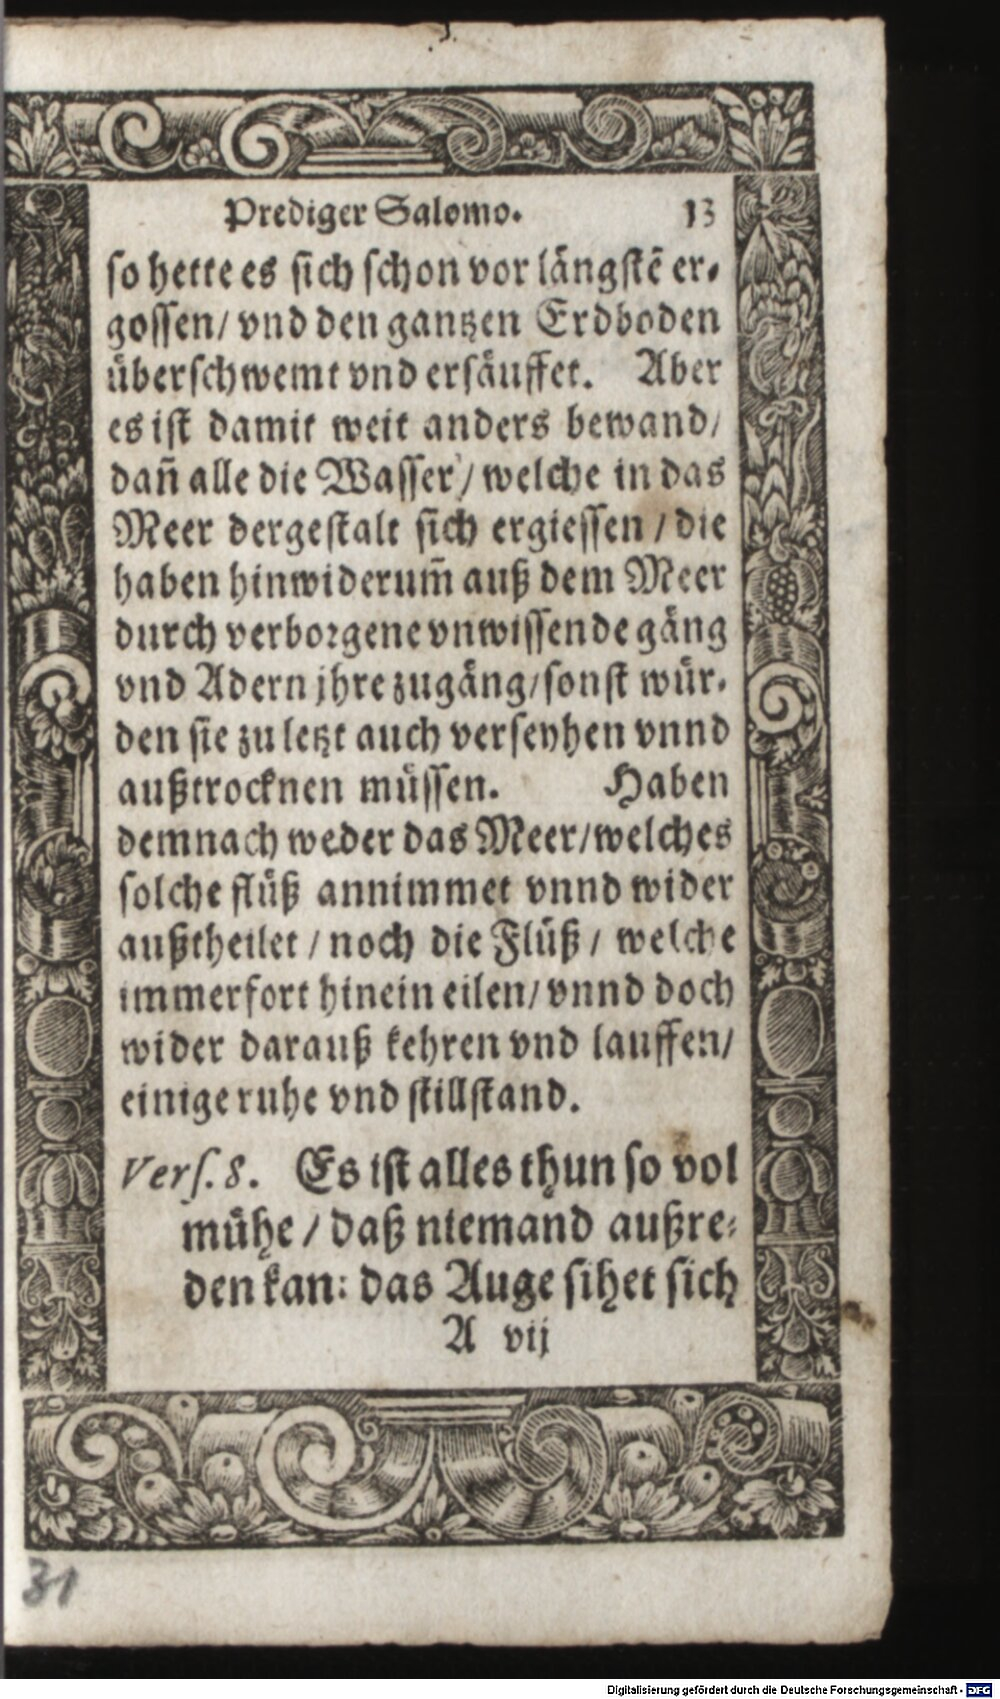 Prediger Salomo. 13
so hette es sich schon vor längstē er-
gossen/ vnd den gantzen Erdboden
überschwemt vnd ersäuffet. Aber
es ist damit weit anders bewand/
dañ alle die Wasser/ welche in das
Meer dergestalt sich ergiessen/ die
haben hinwiderum̃ auß dem Meer
durch verborgene vnwissende gäng
vnd Adern jhre zugäng/ sonst wür-
den sie zu letzt auch verseyhen vnnd
außtrocknen müssen. Haben
demnach weder das Meer/ welches
solche flüß annimmet vnnd wider
außtheilet/ noch die Flüß/ welche
immerfort hinein eilen/ vnnd doch
wider darauß kehren vnd lauffen/
einige ruhe vnd stillstand.
Vers. 8. Es ist alles thun so vol
mühe/ daß niemand außre-
den kan: das Auge sihet sich
A vij
31
Digitalisierung gefördert durch die Deutsche Forschungsgemeinschaft - DFG